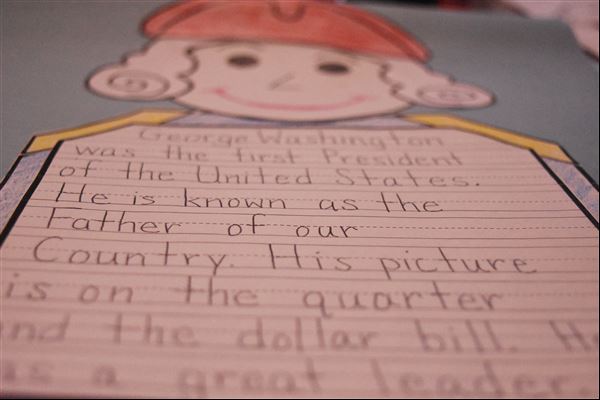 George Washington
was the first President
of the United States.
He is known as the
Father of our
Country. His picture
is on the quarter
and the dollar bill. He
was a great leader.